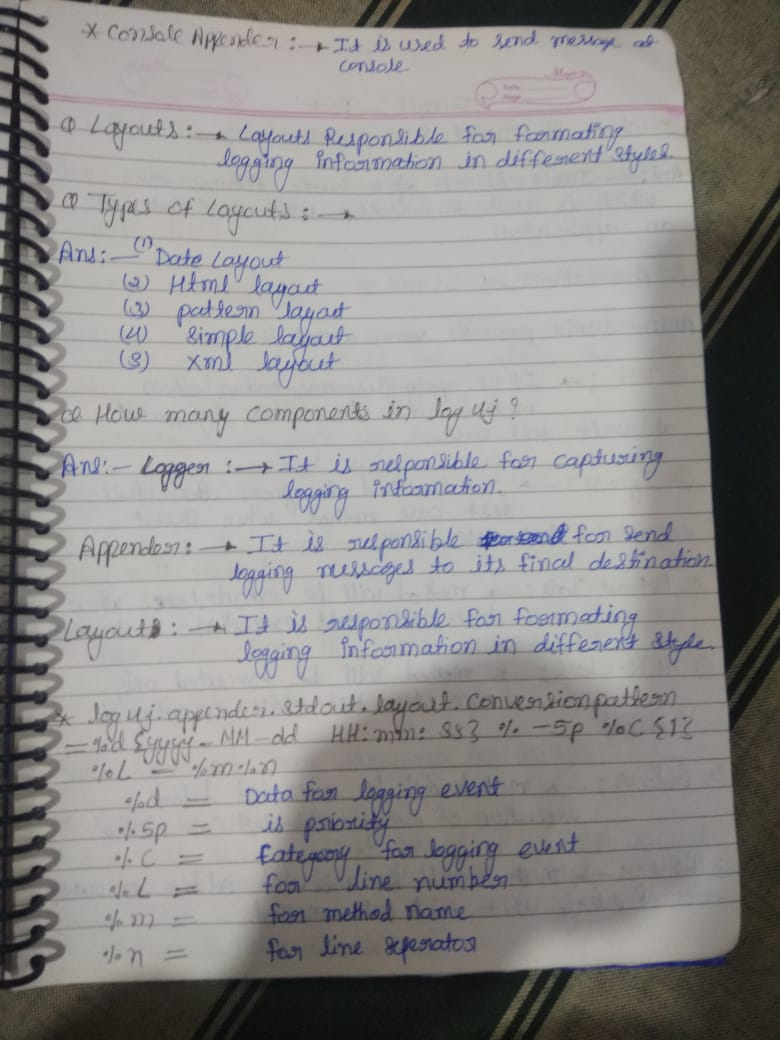 * Console Appender :→ It is used to send message at
console
Q Layouts :→ Layouts Responsible for formating
logging information in different styles.
Q Types of Layouts :→
Ans :- (1) Date Layout
(2) Html layout
(3) pattern layout
(4) simple layout
(5) xml layout
Q How many components in log4j ?
Ans :- Logger :→ It is responsible for capturing
logging information.
Appender :→ It is responsible for send
logging messages to its final destination.
Layouts :→ It is responsible for formating
logging information in different style.
* log4j.appender.stdout.layout.Conversionpattern
= %d {yyyy-MM-dd HH:mm:ss} % -5p %C {1}
%L - %m%n
%d = Data for logging event
%5p = is priority
%C = Category for logging event
%L = for line number
%m = for method name
%n = for line seperator